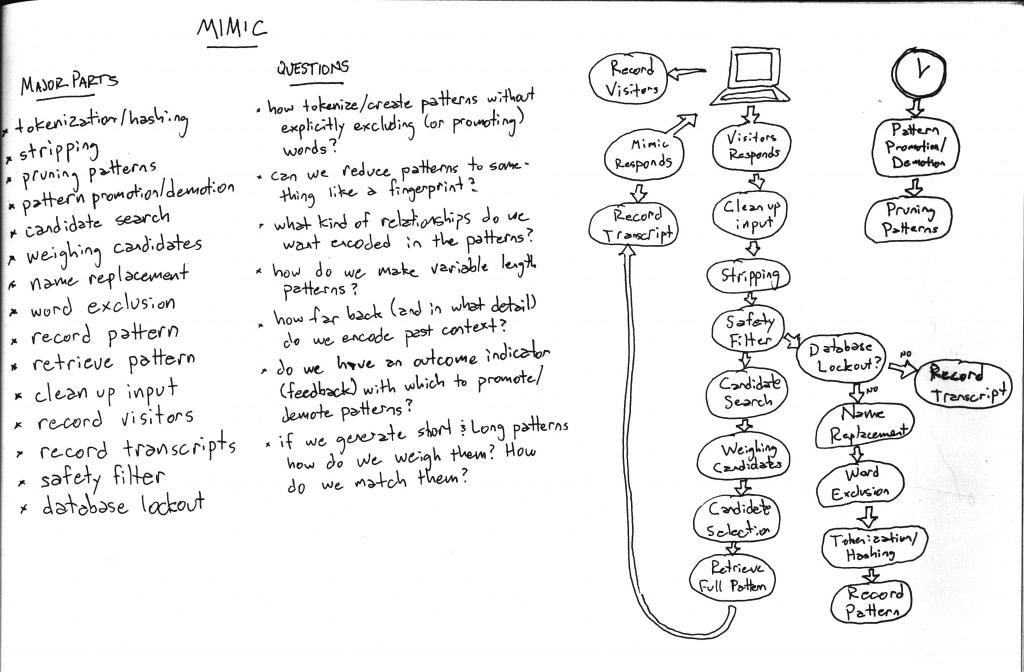 MIMIC
MAJOR PARTS
* tokenization/hashing
* stripping
* pruning patterns
* pattern promotion/demotion
* candidate search
* weighing candidates
* name replacement
* word exclusion
* record pattern
* retrieve pattern
* clean up input
* record visitors
* record transcripts
* safety filter
* database lockout
QUESTIONS
* how tokenize/create patterns without
explicitly excluding (or promoting)
words?
* can we reduce patterns to some-
thing like a fingerprint?
* what kind of relationships do we
want encoded in the patterns?
* how do we make variable length
patterns?
* how far back (and in what detail)
do we encode past context?
* do we have an outcome indicator
(feedback) with which to promote/
demote patterns?
* if we generate short & Long patterns
how do we weigh them? How
do we match them?
Record
Visitors
Mimic
Responds
Record
Transcript
Visitors
Responds
Clean up
input
Stripping
Safety
Filter
Candidate
Search
Weighing
Candidates
Candidate
Selection
Retrieve
Full Pattern
Database
Lockout?
NO
Record
Transcript
NO
Name
Replacement
Word
Exclusion
Tokenization/
Hashing
Record
Pattern
Pattern
Promotion/
Demotion
Pruning
Patterns